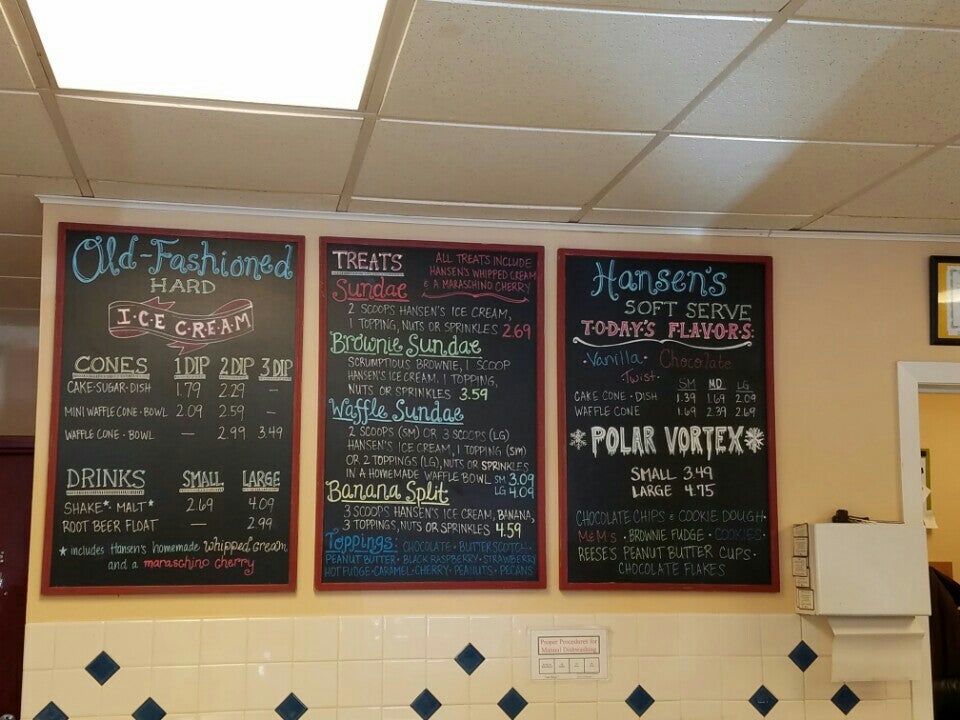 Old-Fashioned
HARD
ICE CREAM
CONES 1 DIP 2 DIP 3 DIP
CAKE·SUGAR·DISH 1.79 2.29 —
MINI WAFFLE CONE·BOWL 2.09 2.59 —
WAFFLE CONE·BOWL — 2.99 3.49
DRINKS SMALL LARGE
SHAKE* MALT* 2.69 4.09
ROOT BEER FLOAT — 2.99
* includes Hansen's homemade whipped cream
and a maraschino cherry
TREATS
ALL TREATS INCLUDE
HANSEN'S WHIPPED CREAM
& A MARASCHINO CHERRY
Sundae
2 SCOOPS HANSEN'S ICE CREAM,
1 TOPPING, NUTS OR SPRINKLES 2.69
Brownie Sundae
SCRUMPTIOUS BROWNIE, 1 SCOOP
HANSEN'S ICE CREAM, 1 TOPPING,
NUTS OR SPRINKLES 3.59
Waffle Sundae
2 SCOOPS (SM) OR 3 SCOOPS (LG)
HANSEN'S ICE CREAM, 1 TOPPING (SM)
OR 2 TOPPINGS (LG), NUTS OR SPRINKLES
IN A HOMEMADE WAFFLE BOWL SM 3.09
LG 4.09
Banana Split
3 SCOOPS HANSEN'S ICE CREAM, BANANA,
3 TOPPINGS, NUTS OR SPRINKLES 4.59
Toppings: CHOCOLATE·BUTTERSCOTCH·
PEANUT BUTTER·BLACK RASPBERRY·STRAWBERRY
HOT FUDGE·CARAMEL·CHERRY·PEANUTS·PECANS
Hansen's
SOFT SERVE
TODAY'S FLAVORS:
·Vanilla· Chocolate
Twist·
SM MD LG
CAKE CONE·DISH 1.39 1.69 2.09
WAFFLE CONE 1.69 2.39 2.69
POLAR VORTEX
SMALL 3.49
LARGE 4.75
CHOCOLATE CHIPS·COOKIE DOUGH·
M&M's·BROWNIE FUDGE·COOKIES·
REESE'S PEANUT BUTTER CUPS·
CHOCOLATE FLAKES
Proper Procedures for
Manual Dishwashing